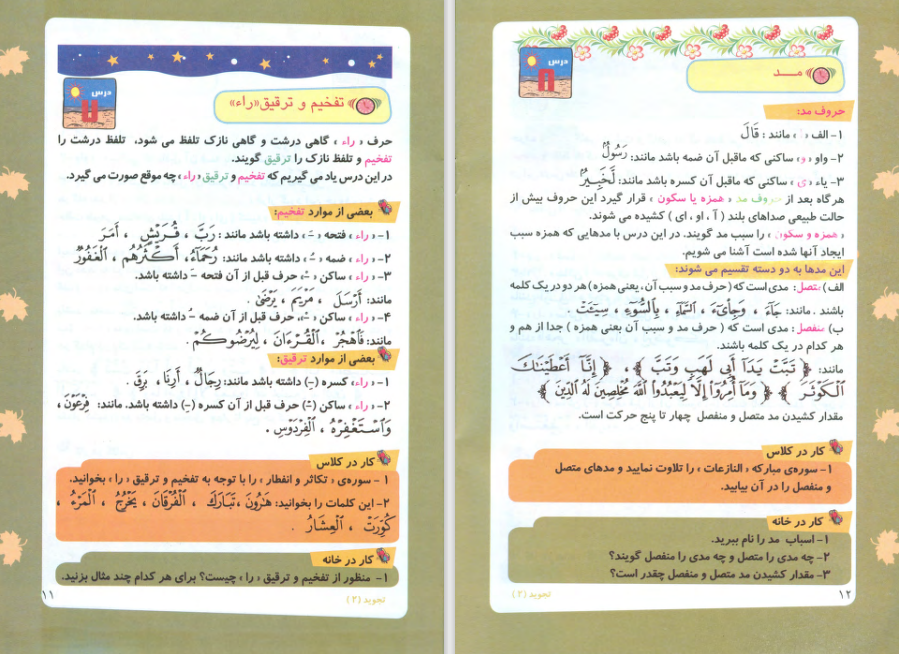 درس
تفخیم و ترقیق«راء»
حرف « راء » گاهی درشت و گاهی نازک تلفظ می شود، تلفظ درشت را
تفخیم و تلفظ نازک را ترقیق گویند.
در این درس یاد می گیریم که تفخیم و ترقیق « راء » چه موقع صورت می گیرد.
بعضی از موارد تفخیم:
۱- « راء » فتحه « ـَـ » داشته باشد مانند : رَبَّ ، قُرَیْشٍ ، أَمَرَ
۲- « راء » ضمه « ـُـ » داشته باشد مانند: رُحَمَآءُ، أَكْثَرُهُم ، الْغَفُورُ
۳- « راء » ساکن « ـْـ » حرف قبل از آن فتحه ـَـ داشته باشد.
مانند: أَرْسَلَ ، مَرْيَمَ ، يَرْضَىٰ .
۴- « راء » ساکن « ـْـ »، حرف قبل از آن ضمه ـُـ داشته باشد.
مانند: فَاهْجُرْ ، الْقُرْءَانَ ، لِيُرْضُوكُمْ .
بعضی از موارد ترقیق:
۱- « راء » کسره (ـِـ) داشته باشد مانند: رِجَالٌ ، أَرِنَا ، بَرِقَ .
۲- « راء » ساکن (ـْـ) حرف قبل از آن کسره (ـِـ) داشته باشد. مانند: فِرْعَوْنَ ،
وَاسْتَغْفِرْهُ ، الْفِرْدَوْسِ .
کار در کلاس
۱ - سوره‌ی « تکاثر و انفطار » را با توجه به تفخیم و ترقیق « را » بخوانید.
۲- این کلمات را بخوانید: هَٰرُونَ ، تَبَارَكَ ، الْفُرْقَانَ ، يَخْرُجُ ، الْمَرْءُ ،
كُوِّرَتْ ، الْعِشَارُ .
کار در خانه
۱- منظور از تفخیم و ترقیق « را » چیست؟ برای هر کدام چند مثال بزنید.
تجوید (۲)
۱۱
درس
مـــد
حروف مد:
۱- الف « ا » مانند : قَالَ
۲- واو « و » ساکنی که ماقبل آن ضمه باشد مانند: رَسُولٌ
۳- یاء « ی » ساکنی که ماقبل آن کسره باشد مانند: لَخَبِيرٌ
هرگاه بعد از حروف مد « همزه یا سکون » قرار گیرد این حروف بیش از
حالت طبیعی صداهای بلند ( آ ، او ، ای ) کشیده می شوند.
« همزه و سکون » را سبب مد گویند. در این درس با مدهایی که همزه سبب
ایجاد آنها شده است آشنا می شویم.
این مدها به دو دسته تقسیم می شوند:
الف) متصل: مدی است که (حرف مد و سبب آن ، یعنی همزه) هر دو در یک کلمه
باشند . مانند: جَآءَ ، وَجِاْىٓءَ ، السَّمَآءِ ، بِالسُّوٓءِ ، سِيٓـَٔتْ .
ب) منفصل : مدی است که ( حرف مد و سبب آن یعنی همزه ) جدا از هم و
هر کدام در یک کلمه باشند.
مانند: ﴿ تَبَّتْ يَدَآ أَبِي لَهَبٍ وَتَبَّ ﴾ ، ﴿ إِنَّآ أَعْطَيْنَاكَ
الْكَوْثَرَ ﴾ ﴿ وَمَآ أُمِرُوٓا۟ إِلَّا لِيَعْبُدُوا۟ اللَّهَ مُخْلِصِينَ لَهُ الدِّينَ ﴾
مقدار کشیدن مد متصل و منفصل چهار تا پنج حرکت است.
کار در کلاس
۱- سوره‌ی مبارکه « النازعات » را تلاوت نمایید و مدهای متصل
و منفصل را در آن بیابید.
کار در خانه
۱- اسباب مد را نام ببرید.
۲- چه مدی را متصل و چه مدی را منفصل گویند؟
۳- مقدار کشیدن مد متصل و منفصل چقدر است؟
تجوید (۲)
۱۲